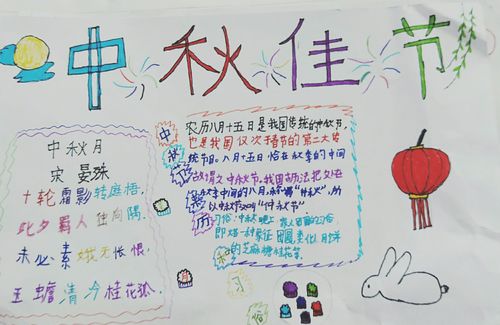 中秋佳节
中秋月
宋 晏殊
十轮霜影转庭梧,
此夕羁人独向隅。
未必素娥无怅恨,
玉蟾清冷桂花孤.
农历八月十五日是我国传统的中秋节,
也是我国仅次于春节的第二大传
统节日。八月十五日恰在秋季的中间
故谓之中秋节。我国古历法把处
秋季中间的八月,称谓"仲秋",所
以中秋节又叫"仲秋节"
习俗:中秋晚上
即烙一种象征团圆
的芝麻糖桂花等
中
秋
习
俗